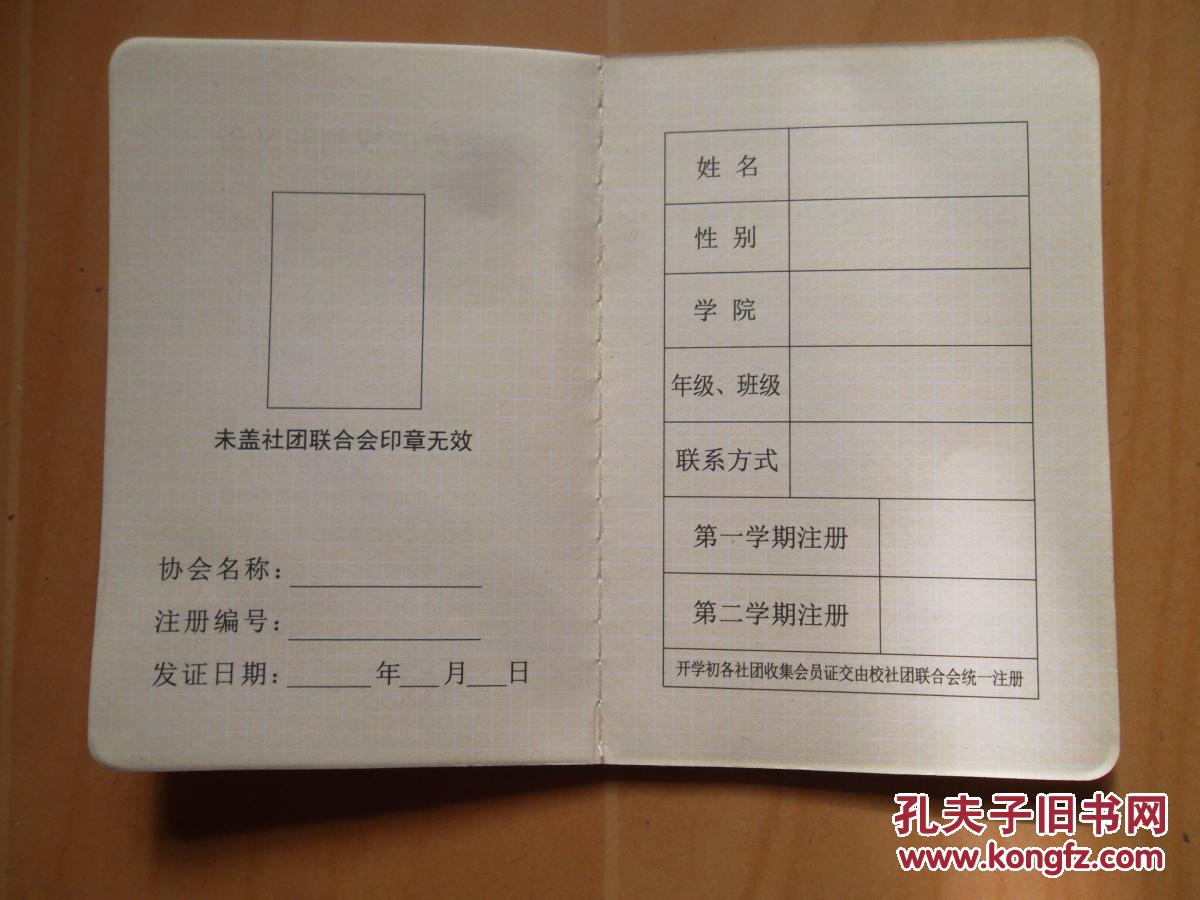 未盖社团联合会印章无效
协会名称：
注册编号：
发证日期： 年 月 日
姓 名
性 别
学 院
年级、班级
联系方式
第一学期注册
第二学期注册
开学初各社团收集会员证交由校社团联合会统一注册
孔夫子旧书网
www.kongfz.com